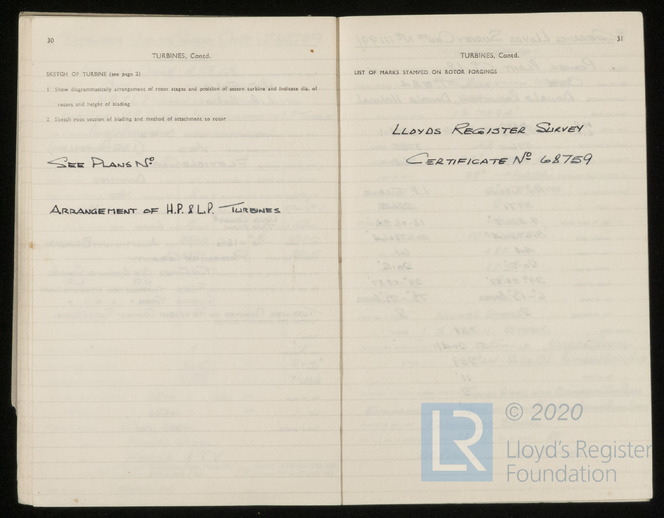 30
TURBINES, Contd.
SKETCH OF TURBINE (see page 2)
1 Show diagrammatically arrangement of rotor stages and position of astern turbine and indicate dia. of
rotors and height of blading
2 Sketch root section of blading and method of attachment to rotor
SEE PLANS Nº
ARRANGEMENT OF H.P. & L.P. TURBINES
31
TURBINES, Contd.
LIST OF MARKS STAMPED ON ROTOR FORGINGS
LLOYDS REGISTER SURVEY
CERTIFICATE Nº 68759
LR
© 2020
Lloyd's Register
Foundation